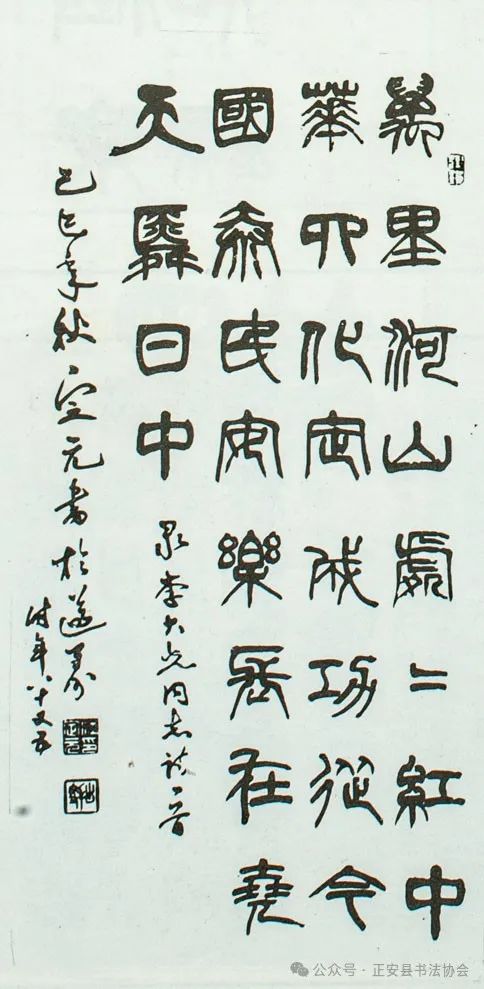 萬里河山處〻紅中
華四化定成功從今
國泰民安樂長在堯
天舜日中
录李大光同志诗一首
己巳年秋定元書於遵义
时年八十又五
公众号·正安县书法协会